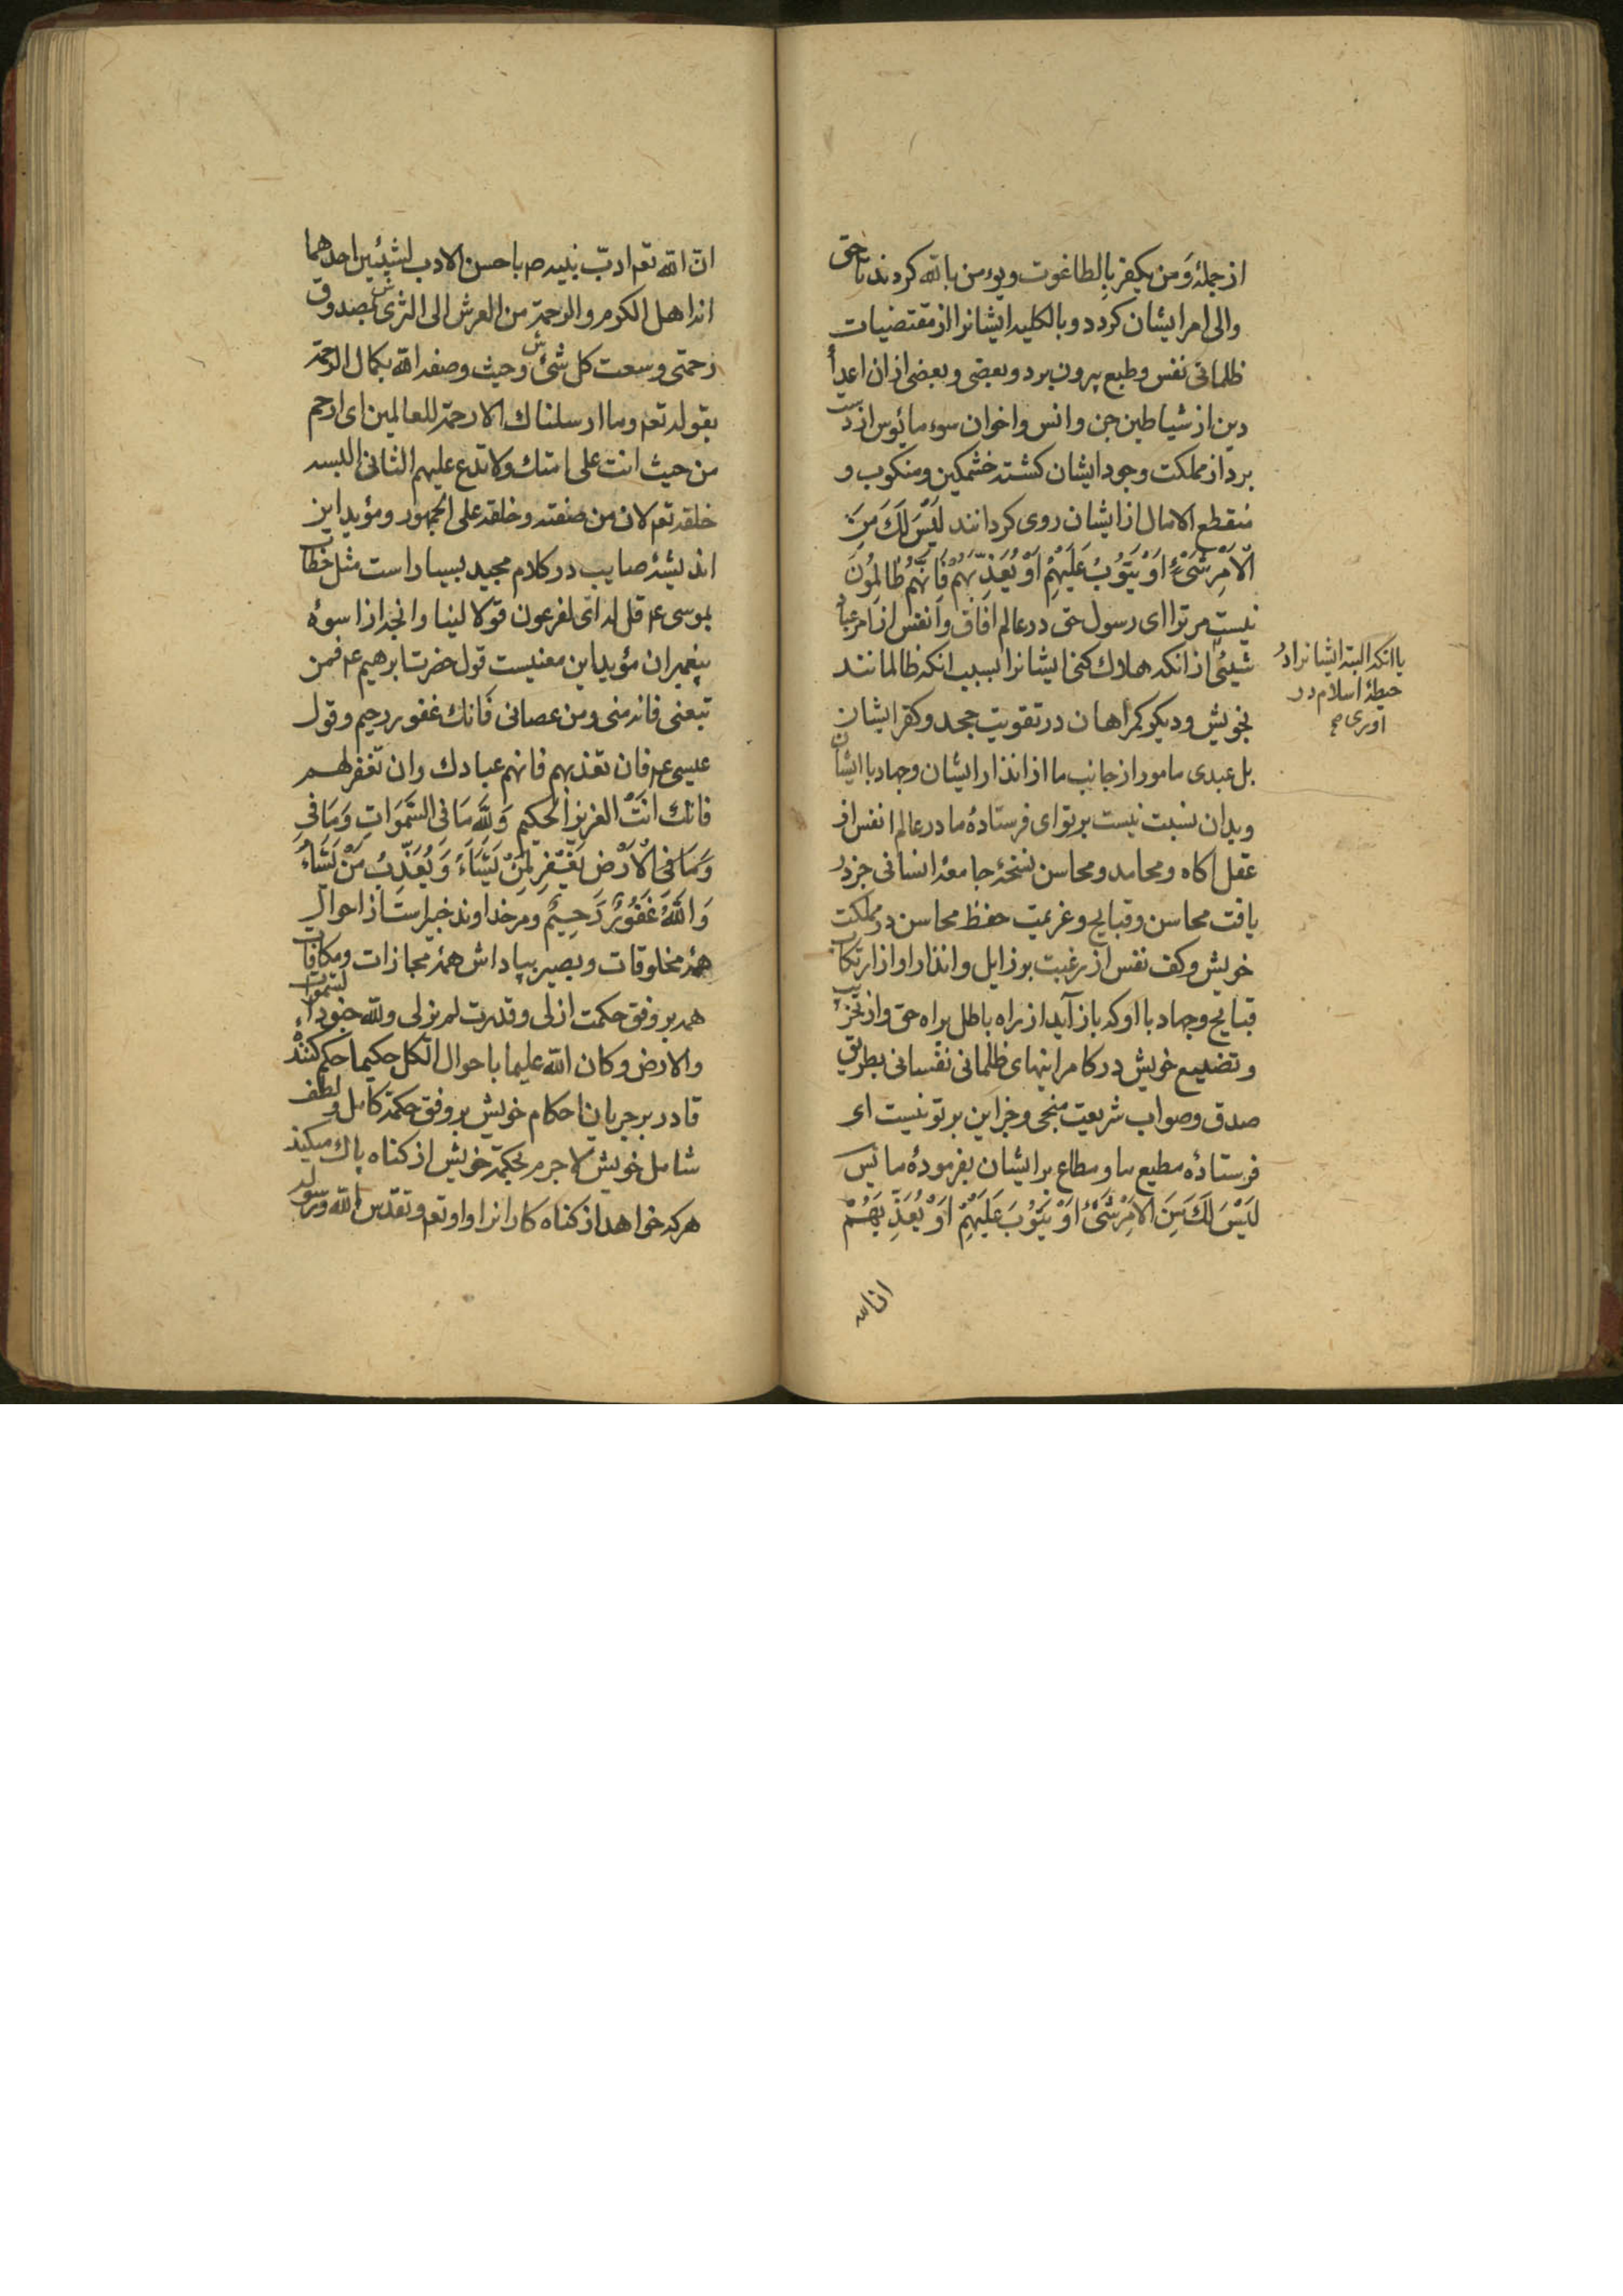 از جملهٔ وَمن یکفر بِالطاغوت ویؤمن بالله کردند تا حق
والی امر ایشان کردد و بالکلیه ایشانرا از مقتضیات
ظلمانی نفس وطبع بیرون برد و بعضی وبعضی از ان اعدأ
دین از شیاطین جن وانس واخوان سوء مائوس از دست
برد از مملکت وجود ایشان کشته خشمکین ومنکوب و
منقطع الامال از ایشان روی کردانند لَیْسَ لَكَ مِنَ
الْاَمْرِ شَیْءٌ اَوْ یَتُوْبَ عَلَیْهِمْ اَوْ یُعَذِّبَهُمْ فَاِنَّهُمْ ظَالِمُوْنَ
نیست مر ترا ای رسول حق در عالم افاق وانفس از امر عباد
شیئی از انکه هلاك کنی ایشانرا بسبب انکه ظالمانند
یا انکه البته ایشانرا در
حیطهٔ اسلام در
اوری صح
بخویش ودیکر کمراهان در تقویت جحد وکفر ایشان
بل عبدی مامور از جانب ما از انذار ایشان وجهاد با ایشان
وبدان نسبت نیست بر تو ای فرستادهٔ ما در عالم انفس از
عقل اکاه ومحامد ومحاسن نسخهٔ جامعهٔ انسانی جز در
یافت محاسن وقبایح وعزیمت حفظ محاسن در مملکت
خویش وکف نفس از رغبت برذایل وانذار او از ارتکاب
قبایح وجهاد با او که باز آید از راه باطل براه حق واز تخریب
وتضییع خویش در کامرانیهای ظلمانی نفسانی بطریق
صدق وصواب شریعت منجی وجز این بر تو نیست ای
فرستادهٔ مطیع ما ومطاع بر ایشان بفرمودهٔ ما پس
لَیْسَ لَكَ مِنَ الاَمْرِ شَیْءٌ اَوْ یَتُوْبَ عَلَیْهِمْ اَوْ یُعَذِّبَهُمْ
ان الله
انّ الله تعم ادبّ نبیه صم باحسن الادب لشیئین احدهما
انه اهل الکرم والرحمة من العرش الی الثری بصدوق
رحمتی وسعت کل شئ وحیث وصفه الله بکمال الرحمة
بقوله تعم وما ارسلناك الا رحمة للعالمین ای ارحم
من حیث انت علی امتك ولا تدع علیهم الثانی البسه
خلقه تعم لان من صفته وخلقه علی الجمهور ومؤید این
اندیشهٔ صایب در کلام مجید بسیار است مثل خطاب
بموسی عم قل له ای لفرعون قولا لینا وانجه از اسوهٔ
پیغمبران مؤید این معنیست قول حضرت ابرهیم عم فمن
تبعنی فانه منی ومن عصانی فانك غفور رحیم وقول
عیسی عم فان تعذبهم فانهم عبادك وان تغفر لهم
فانك انت العزیز الحکیم وَلِلّٰهِ مَا فِی السَّمَوَاتِ وَمَا فِی
وَمَا فِی الْاَرْضِ یَغْفِرُ لِمَنْ یَشَاءُ وَیُعَذِّبُ مَنْ یَشَاءُ
وَاللّٰهُ غَفُوْرٌ رَحِیْمٌ ومر خداوند خبیر است از احوال
همهٔ مخلوقات وبصیر بپاداش همهٔ مجازات ومکافات
همه بر وفق حکمت ازلی وقدرت لم یزلی ولله جنود السموات
والارض وکان الله علیما باحوال الکل حکیما حکم کننده
قادر بر جریان احکام خویش بر وفق حکمة کامل ولطف
شامل خویش لا جرم بحکمة خویش از کناه پاك میکند
هر که خواهد از کناه کارانرا واو تعم وتقدس الله ورسوله